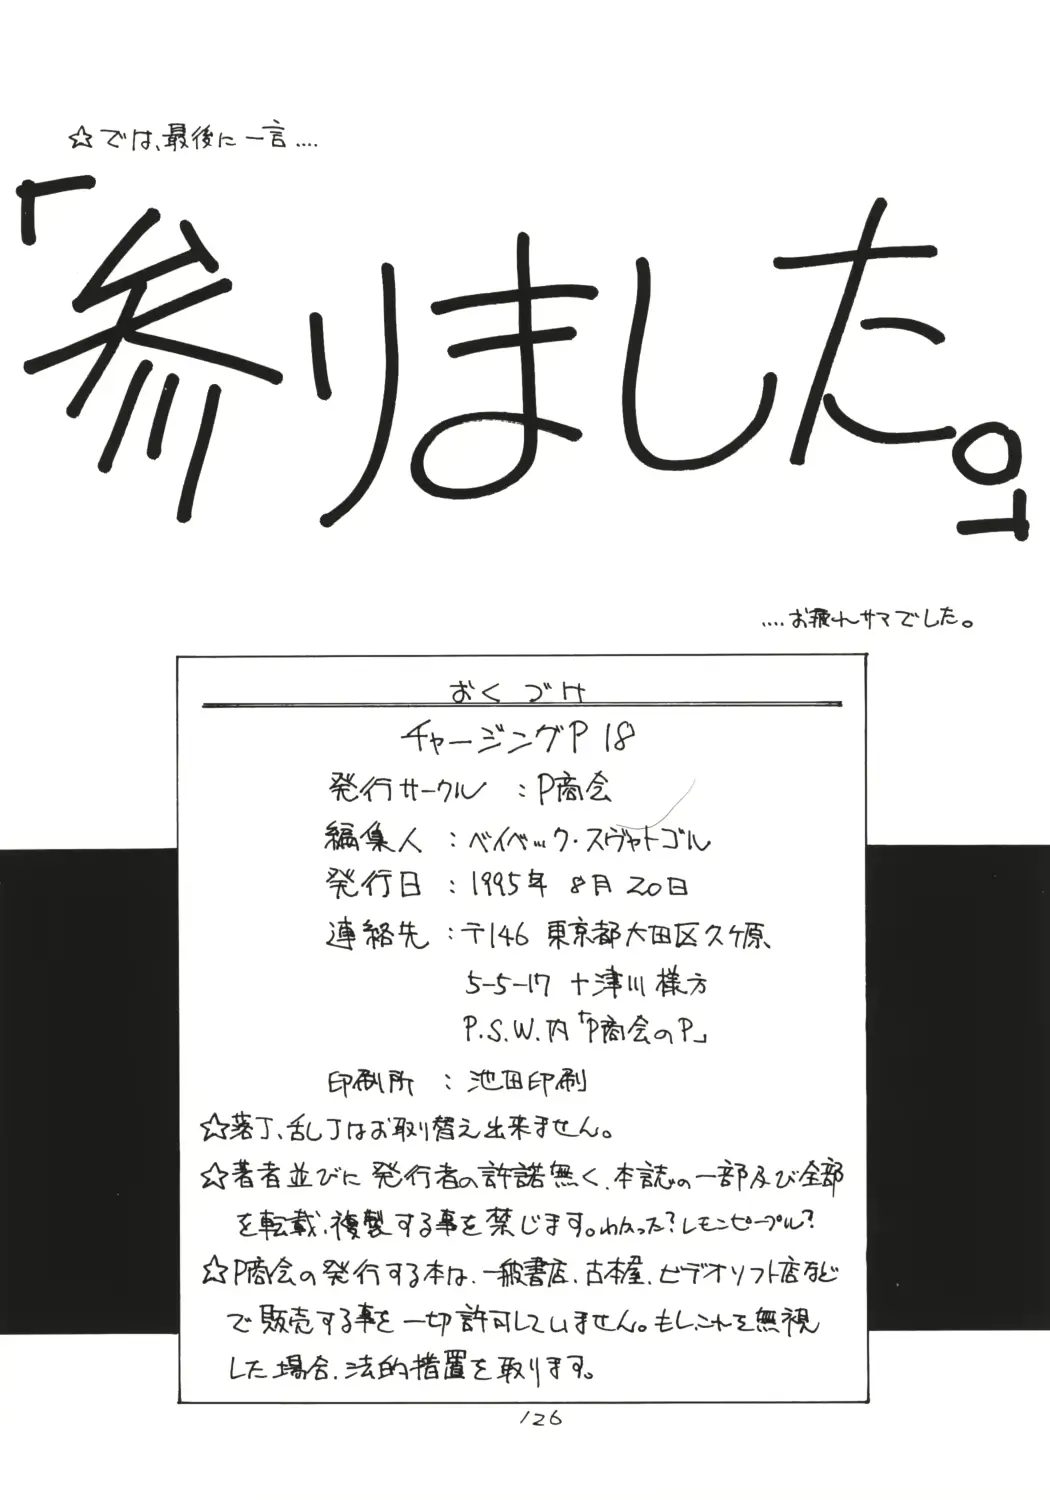 ☆では、最後に一言....
「参りました。」
....お疲れサマでした。
おくづけ
チャージングP 18
発行サークル : P商会
編集人 : ベイベック・スヴャトゴル
発行日 : 1995年 8月 20日
連絡先 : 〒146 東京都大田区久ケ原、
5-5-17 十津川様方
P.S.W.内「P商会のP」
印刷所 : 池田印刷
☆落丁、乱丁はお取り替え出来ません。
☆著者並びに発行者の許諾無く、本誌の一部及び全部
を転載、複製する事を禁じます。わかった?レモンピープル?
☆P商会の発行する本は、一般書店、古本屋、ビデオソフト店など
で販売する事を一切許可していません。もし、これを無視
した場合、法的措置を取ります。
126